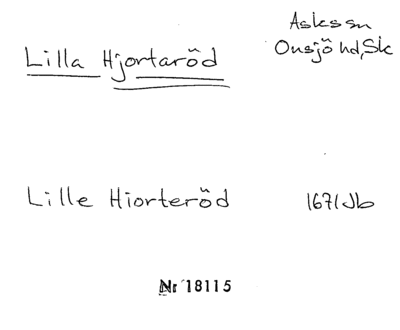 Lilla Hjortaröd
Askes sn
Onsjö hd, Sk
Lille Hiorteröd
1671 Jb
Nr 18115